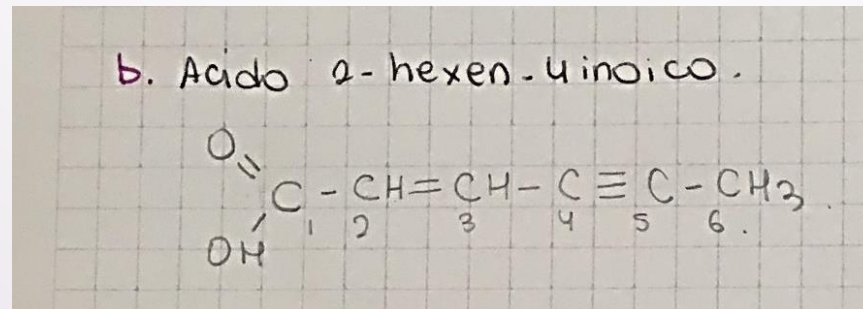 b. Acido 2-hexen-4inoico.
O
C - CH = CH - C ≡ C - CH3.
1 2 3 4 5 6.
OH